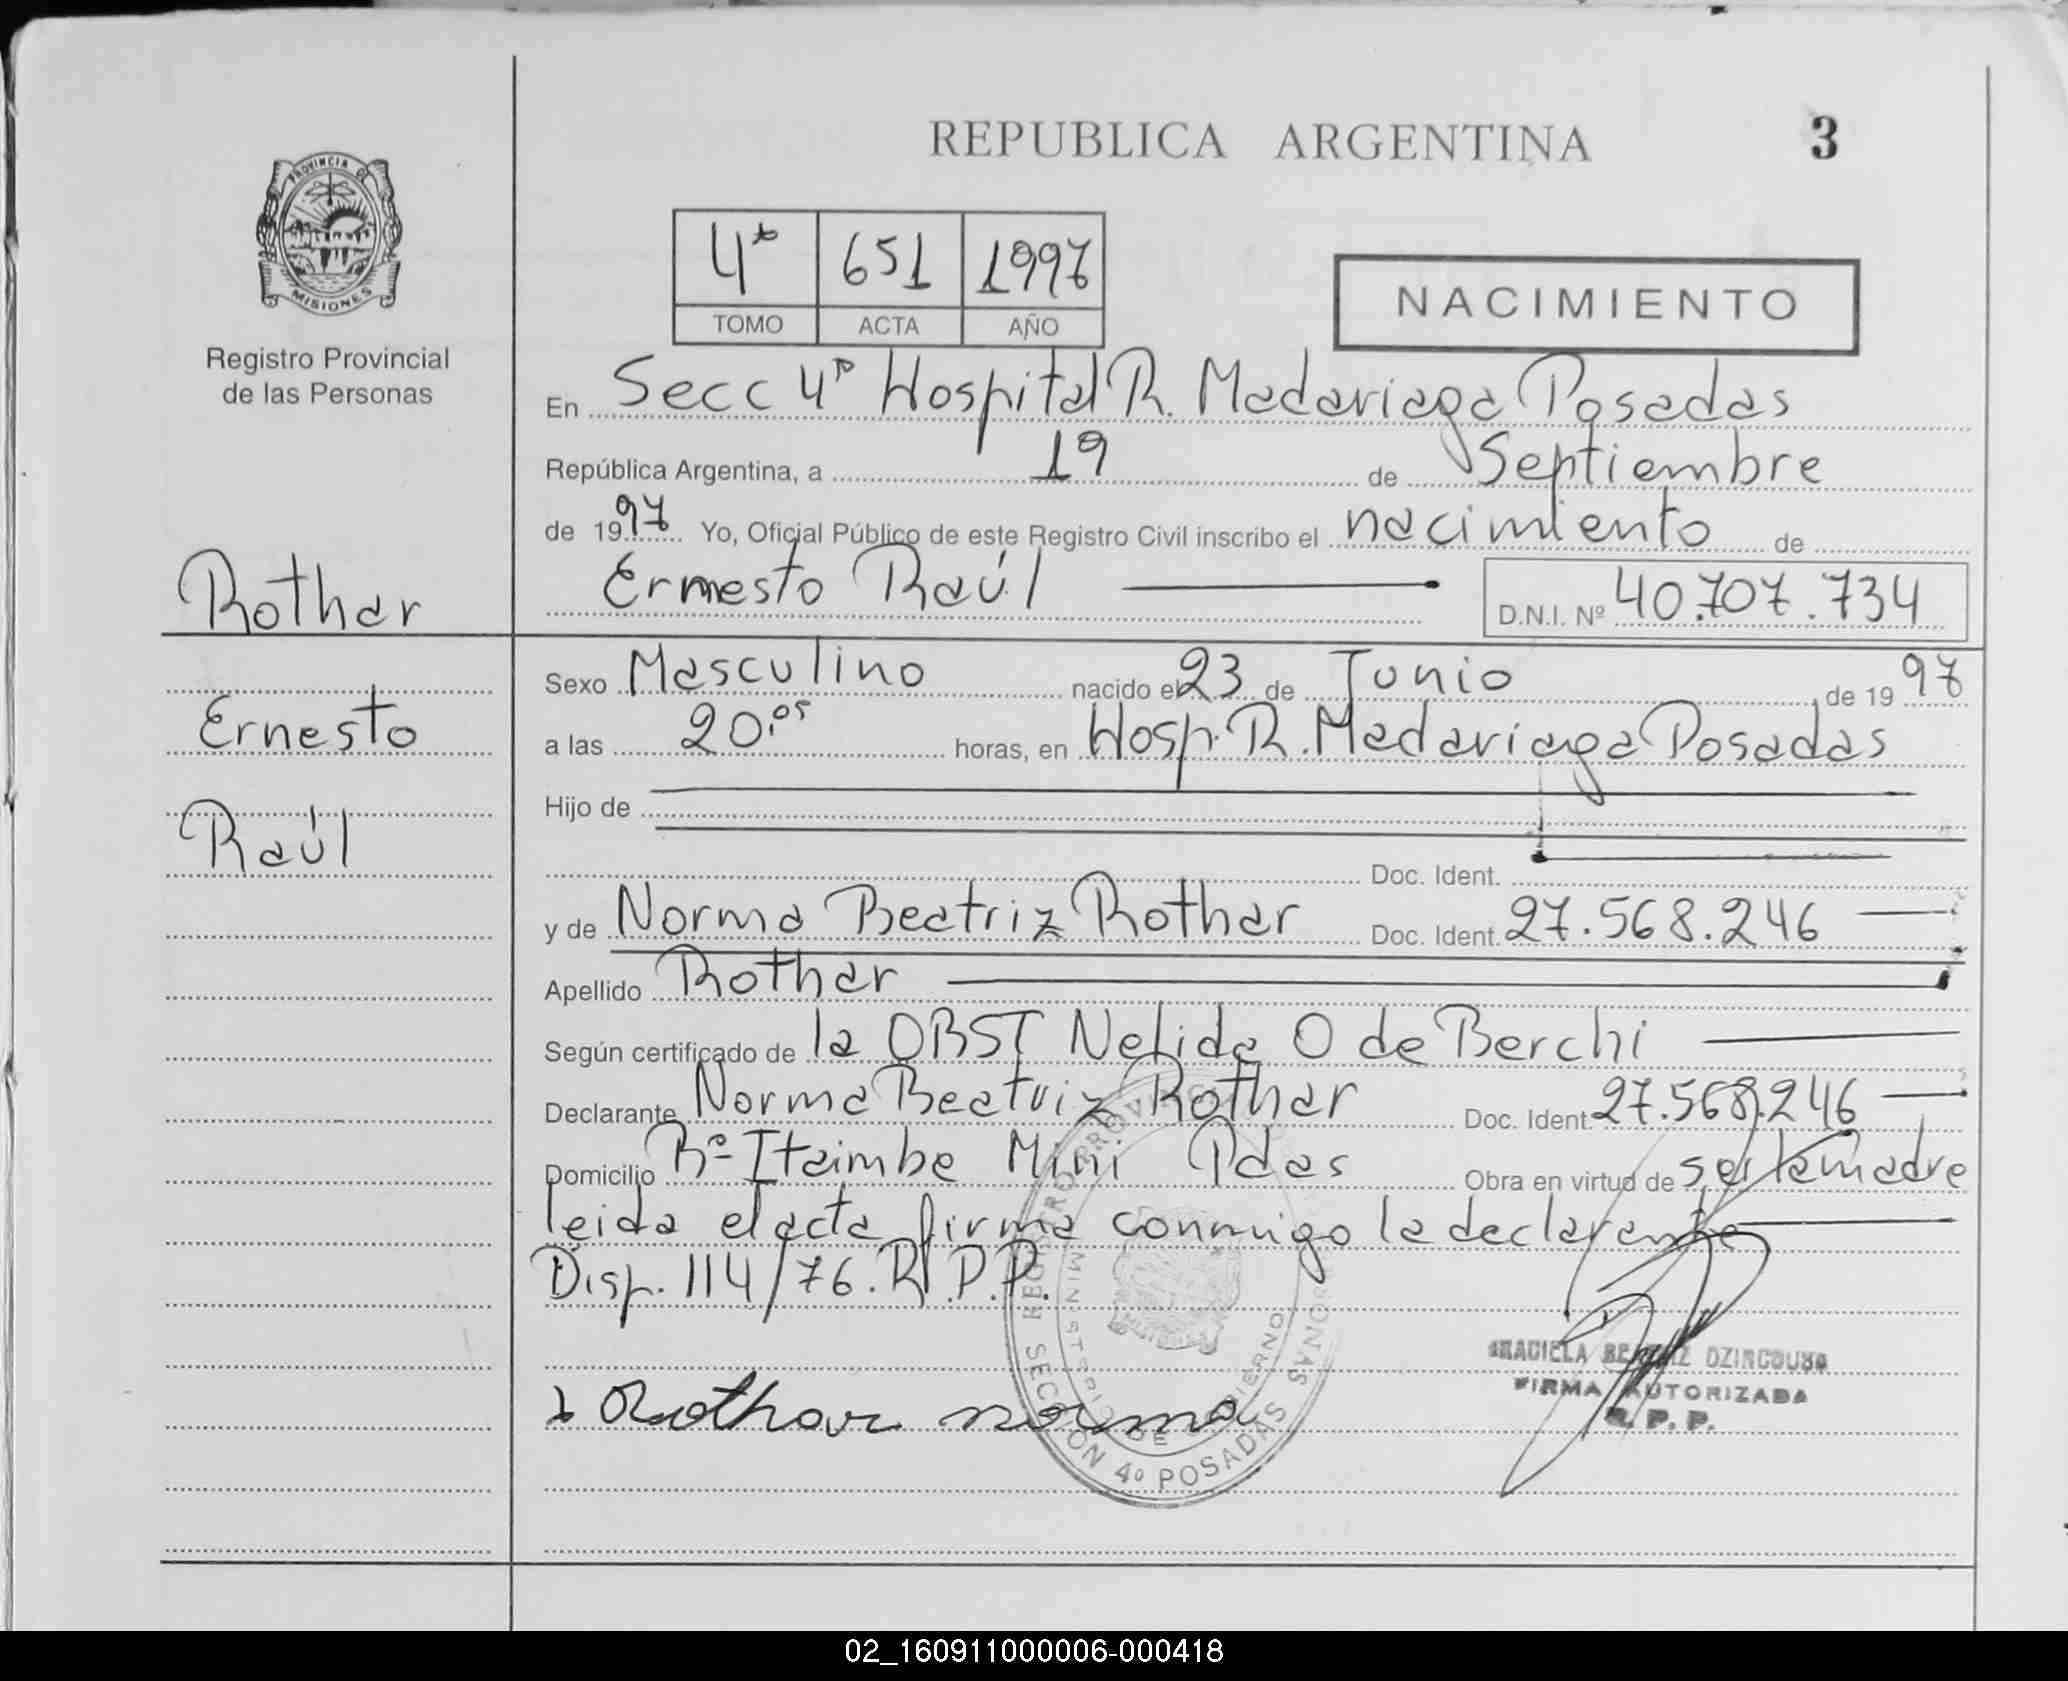 REPUBLICA ARGENTINA 3
PROVINCIA DE
MISIONES
Registro Provincial
de las Personas
4º 651 1997
TOMO ACTA AÑO
NACIMIENTO
En Secc 4º Hospital R. Madariaga Posadas
República Argentina, a 19 de Septiembre
de 1997 Yo, Oficial Público de este Registro Civil inscribo el nacimiento de
Rothar
Ernesto Raúl D.N.I. Nº 40.707.734
Sexo Masculino nacido el 23 de Junio de 1997
Ernesto
a las 20.05 horas, en Hosp. R. Madariaga Posadas
Hijo de
Raúl
Doc. Ident.
y de Norma Beatriz Rothar Doc. Ident. 27.568.246
Apellido Rothar
Según certificado de la OBST Nelida O de Berchi
Declarante Norma Beatriz Rothar Doc. Ident. 27.568.246
Domicilio Bº Itaimbe Mini Pdas Obra en virtud de ser la madre
leida el acta firma conmigo la declarante
Disp. 114/76. R.P.P.
Rothar norma
REGISTRO PROVINCIAL
MINISTERIO DE GOBIERNO
SECCION 4º POSADAS
GRACIELA BEATRIZ
FIRMA AUTORIZADA
R. P. P.
02_160911000006-000418